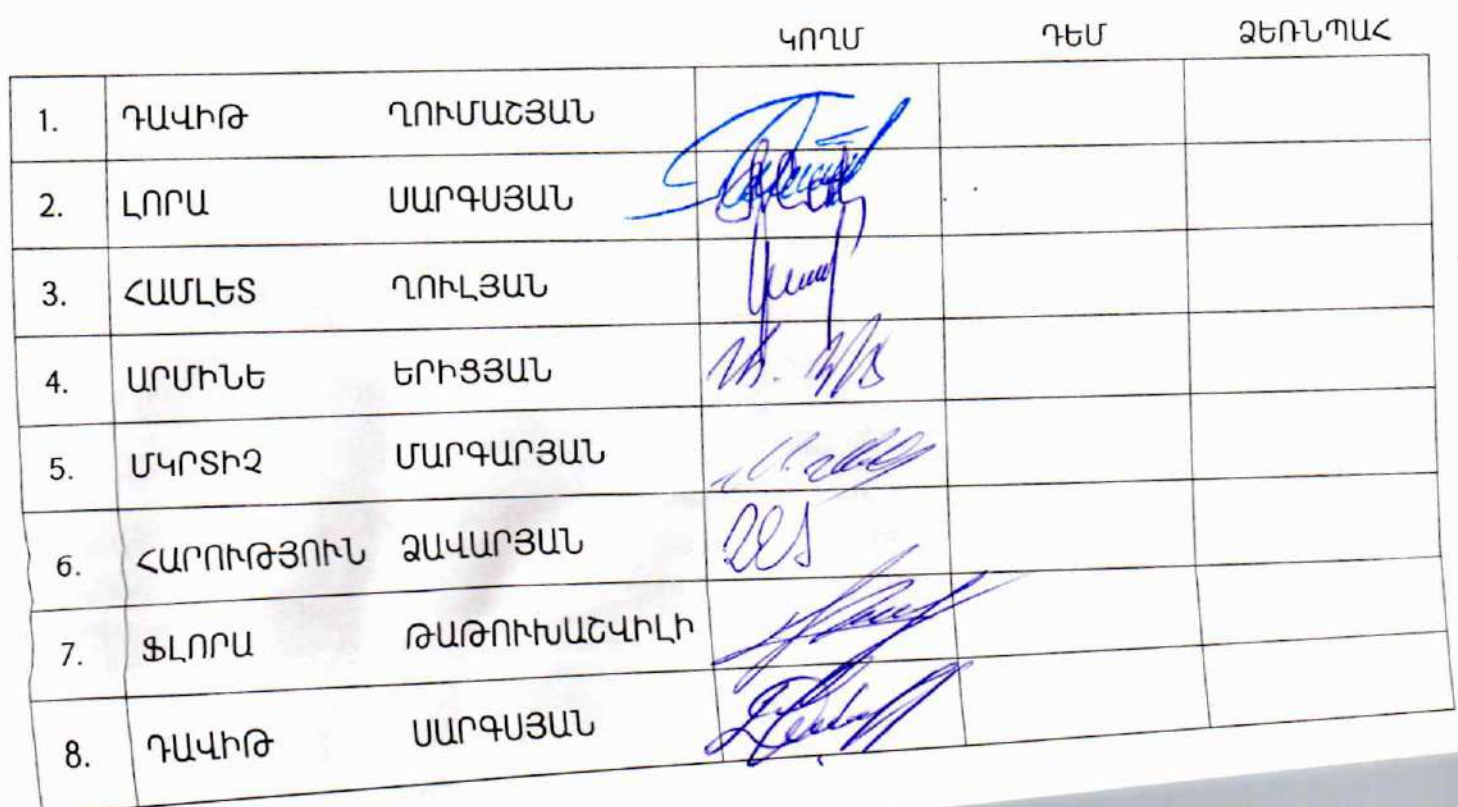 ԿՈՂՄ ԴԵՄ ՁԵՌՆՊԱՀ
1. ԴԱՎԻԹ ՂՈՒՄԱՇՅԱՆ
2. ԼՈՐԱ ՍԱՐԳՍՅԱՆ
3. ՀԱՄԼԵՏ ՂՈՒԼՅԱՆ
4. ԱՐՄԻՆԵ ԵՐԻՑՅԱՆ
5. ՄԿՐՏԻՉ ՄԱՐԳԱՐՅԱՆ
6. ՀԱՐՈՒԹՅՈՒՆ ՁԱՎԱՐՅԱՆ
7. ՖԼՈՐԱ ԹԱԹՈՒԽԱՇՎԻԼԻ
8. ԴԱՎԻԹ ՍԱՐԳՍՅԱՆ